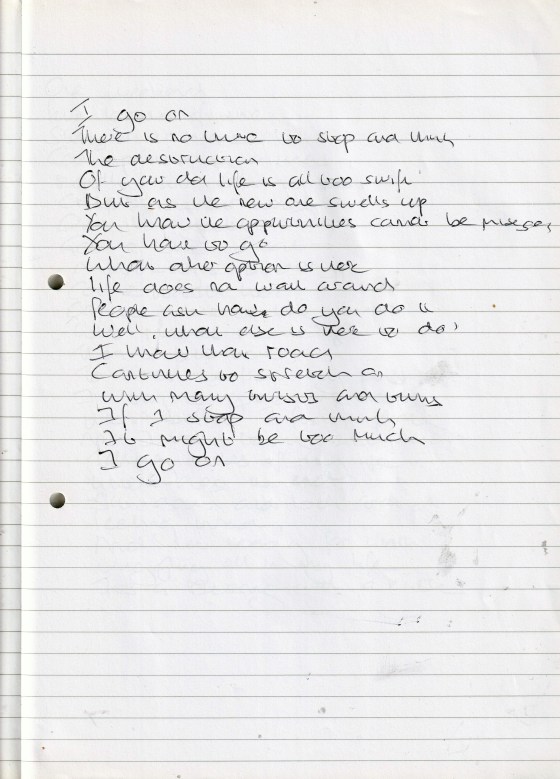 I go on
There is no time to stop and think
The destruction
Of your old life is all too swift
But as the new one swells up
You know the opportunities cannot be missed,
You have to go
What other option is there
Life does not wait around
People ask how do you do it
Well, what else is there to do?
I know that road
Continues to stretch on
With many twists and turns
If I stop and think
It might be too much
I go on